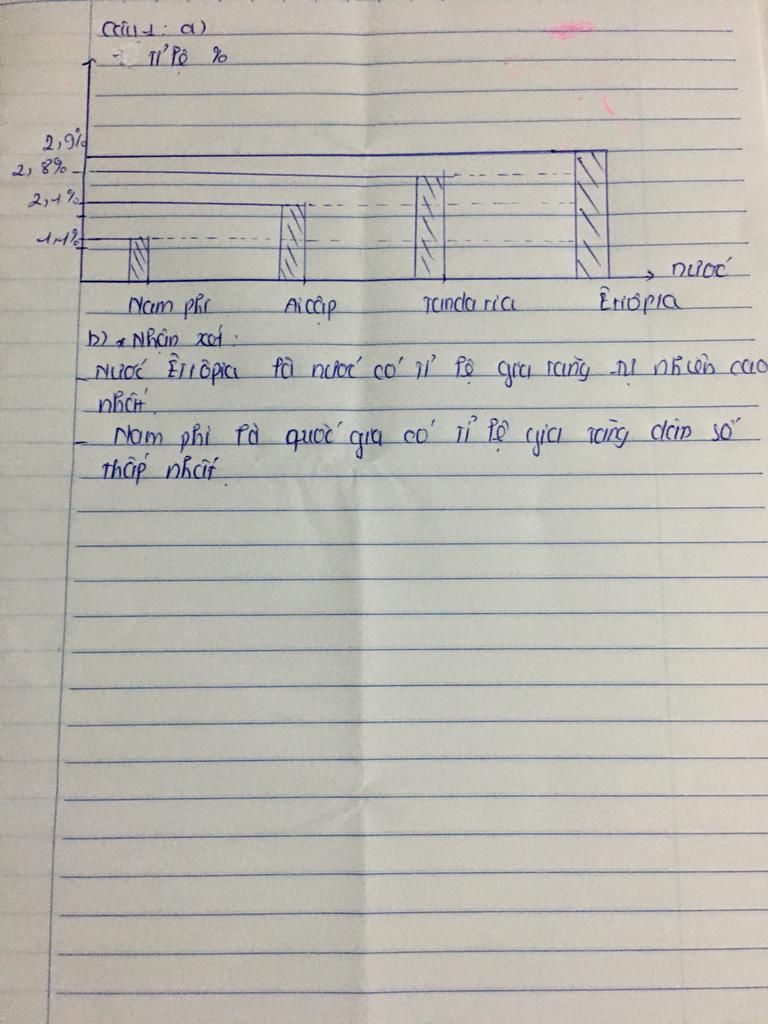 Câu 1: a)
- Tỉ lệ %
2,9%
2,8%
2,1%
1,1%
nước
Nam phi Ai cập Tandania Êtiôpia
b) * Nhận xét:
- Nước Êtiôpia là nước có tỉ lệ gia tăng tự nhiên cao
nhất.
- Nam phi là quốc gia có tỉ lệ gia tăng dân số
thấp nhất.